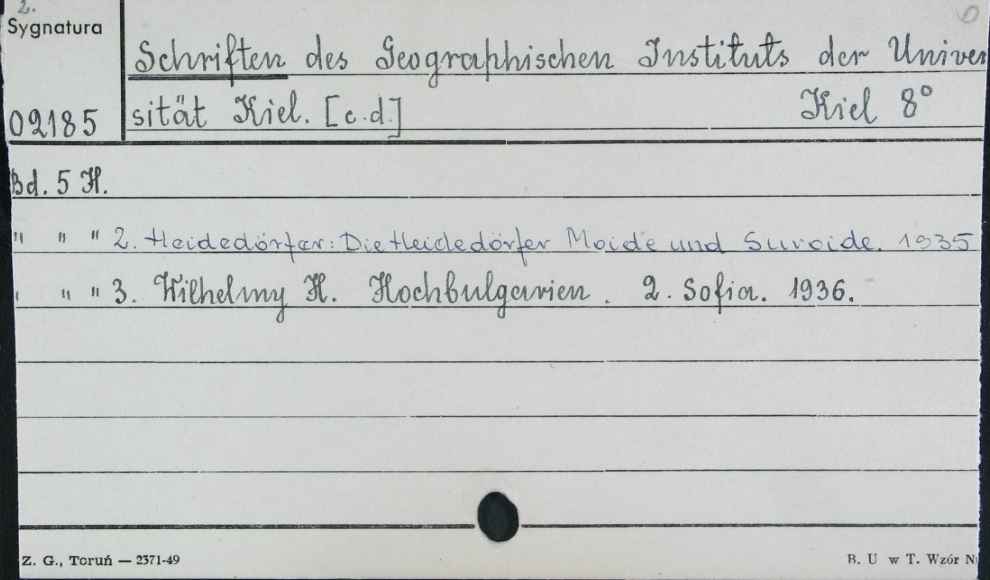 2.
Sygnatura
Schriften des Geographischen Instituts der Univer
02185 sität Kiel. [c.d.] Kiel 8°
Bd. 5 H.
" " " 2. Heidedörfer: Die Heidedörfer Moide und Suroide. 1935
" " " 3. Wilhelmy H. Hochbulgarien. 2. Sofia. 1936.
Z. G., Toruń — 2371-49 B. U w T. Wzór N